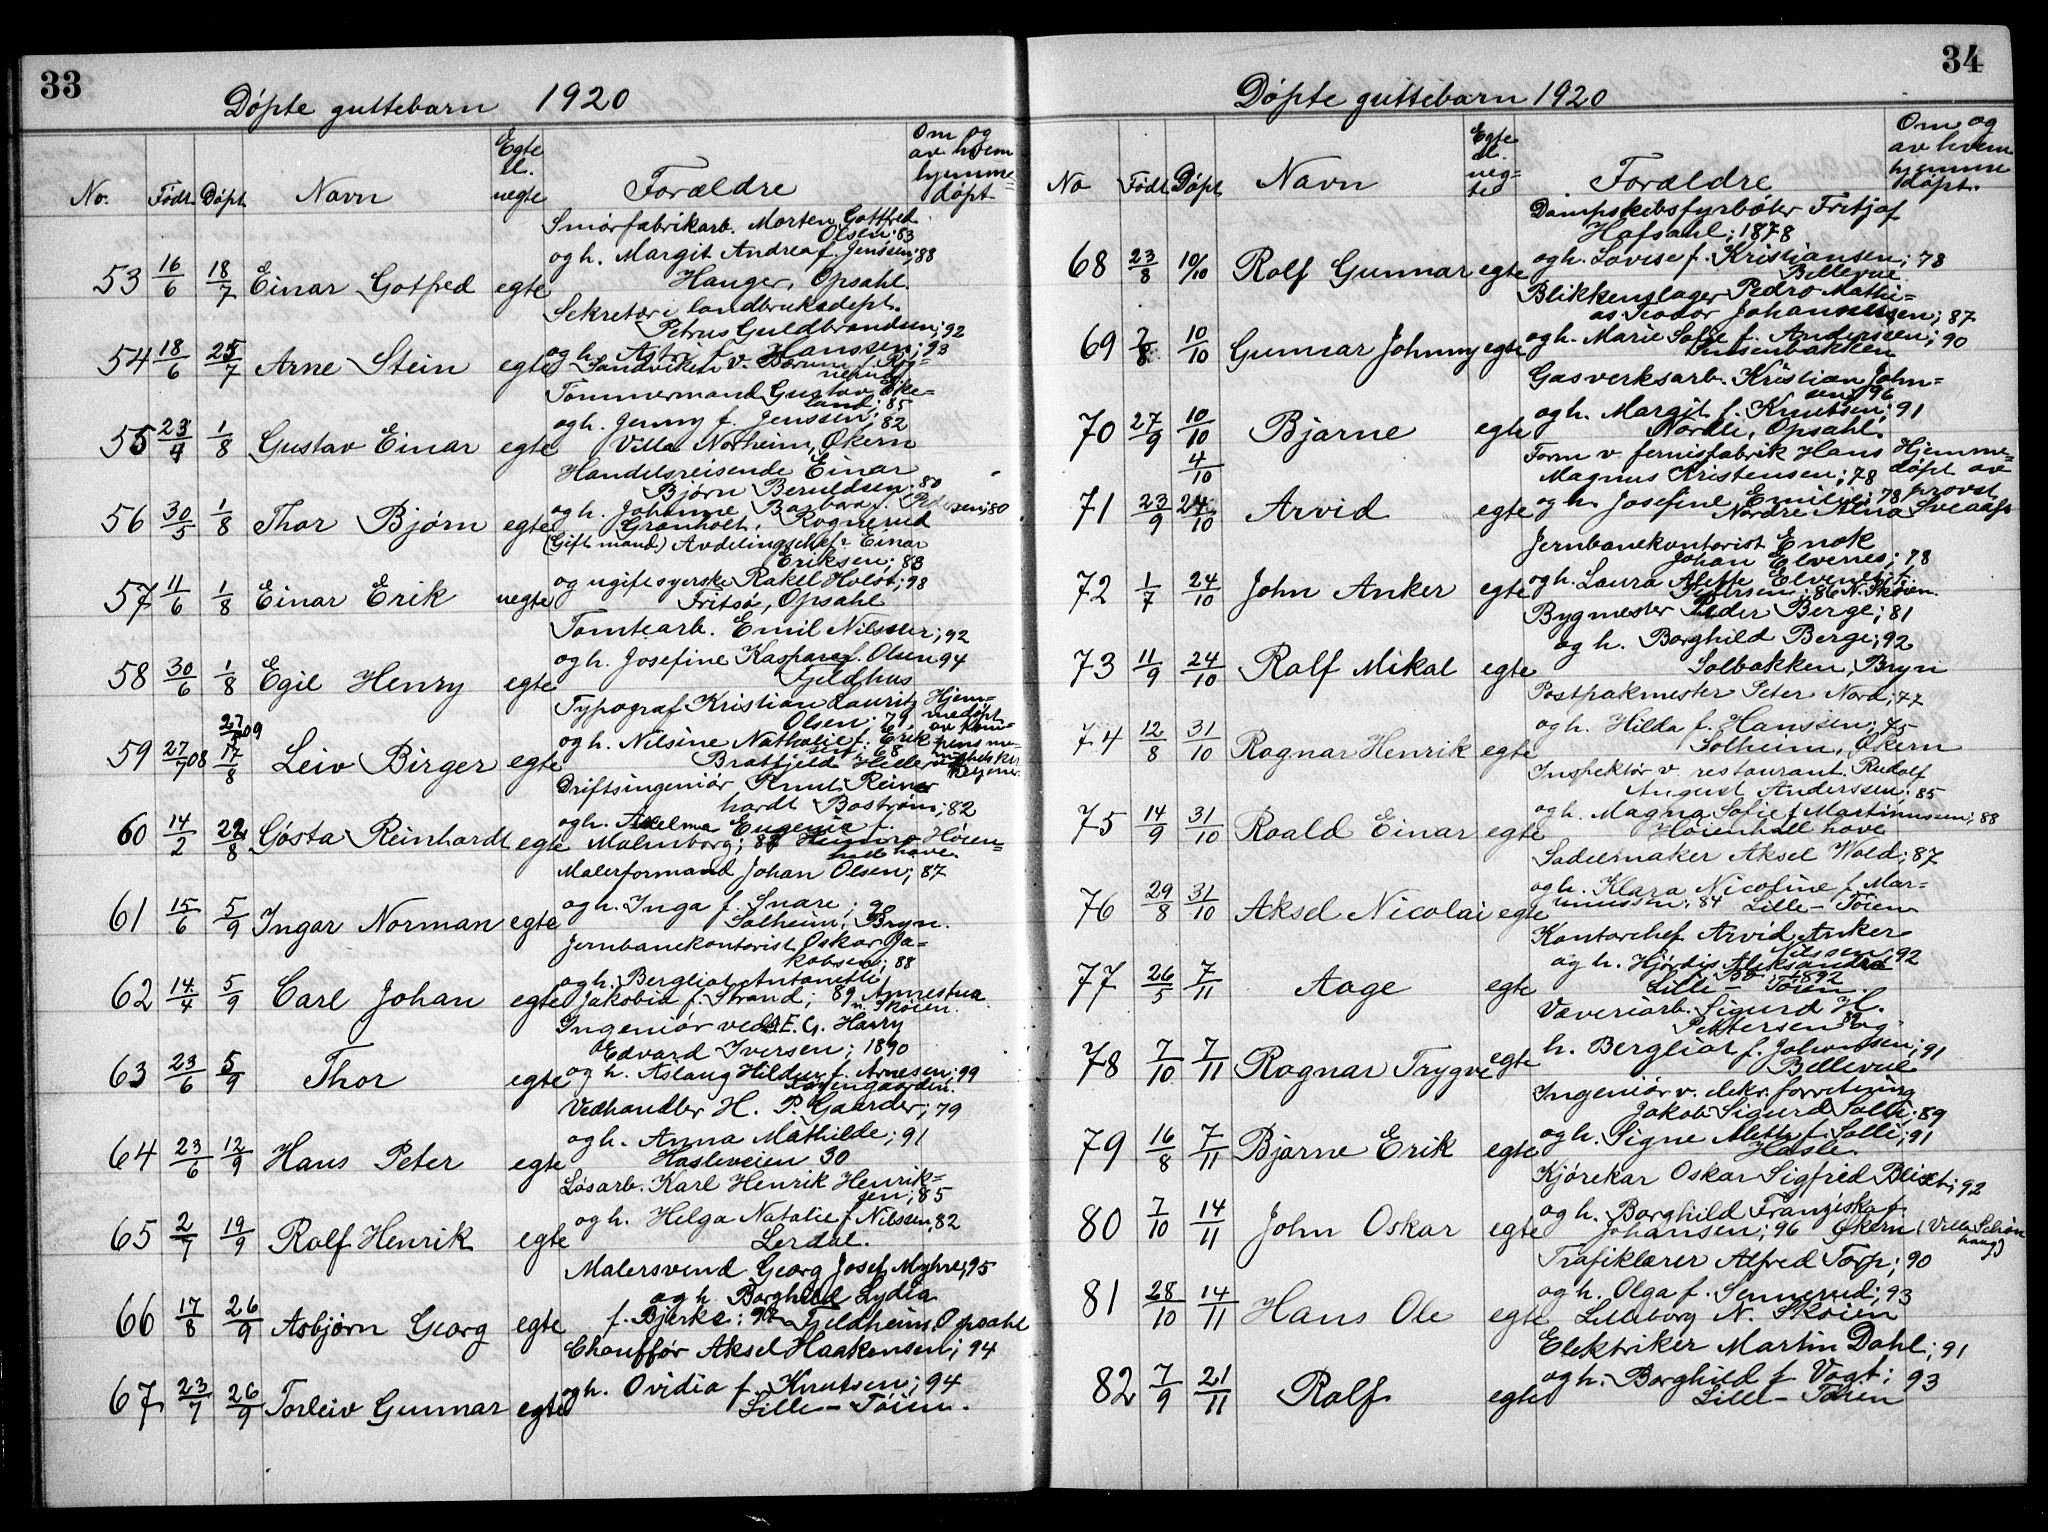 33
Døpte guttebarn 1920
No. Født Døpt Navn Egte el. uegte Forældre Om og av hvem hjemme=døpt
Smørfabrikarb. Morten Gottfred
Olsen; 83
og h. Margit Andrea f. Jenssen; 88
53 16/6 18/7 Einar Gotfred egte Hauger, Opsahl.
Sekretær i landbruksdept.
Petrus Guldbrandsen; 92
og h. f. Hanssen; 93
54 18/6 25/7 Arne Stein egte Sandviken v. Bærum
Tømmermand Gustav Øke=
land; 85
og h. Jenny f. Jenssen; 82
55 23/4 1/8 Gustav Einar egte Villa Norheim, Økern
Handelsreisende Einar
Bjørn Beruldsen; 80
og h. Johanne Barbara f. Petersen; 80
56 30/5 1/8 Thor Bjørn egte Granholt, Rognerud
(Gift mand) Avdelingschef Einar
Eriksen; 83
og ugift syerske Rakel Holst; 98
57 11/6 1/8 Einar Erik uegte Fritsø, Opsahl
Tomtearb. Emil Nilssen; 92
og h. Josefine Kaspara f. Olsen 94
58 30/6 1/8 Egil Henry egte Gildhus
Typograf Kristian Lauritz
Olsen; 79
og h. Nilsine Nathalie f. Erik
sen; 68
59 27/7 08 27/7 09 17/8 Leiv Birger egte Bratfjeld Hiller
Hjem=
medøpt
Driftsingeniør Knut Reiner
hardt Bostrøm; 82
og h. Adelma Eugenie f.
60 14/2 22/8 Gösta Reinhardt egte Malmborg; 87 Høien=
hall have.
Malerformand Johan Olsen; 87
og h. Inga f. Snare; 90
61 15/6 5/9 Ingar Norman egte Solheim, Bryn.
Jernbanekontorist Oskar Ja=
kobsen; 88
og h. Bergliot Antonette
62 14/4 5/9 Carl Johan egte Jakobia f. Strand; 89
n. Skøien.
Ingeniør ved A.E.G. Harry
Edvard Iversen; 1890
og h. Aslaug Hildur f. Arnesen; 99
63 23/6 5/9 Thor egte
Vedhandler H. P. Gaarder; 79
og h. Anna Mathilde; 91
64 23/6 12/9 Hans Peter egte Hasleveien 30
Løsarb. Karl Henrik Henrik=
sen; 85
og h. Helga Natalie f. Nilssen, 82
65 2/7 19/9 Rolf Henrik egte Lerdal.
Malersvend Georg Josef Myhre; 95
og h. Borghild Lydia
66 17/8 26/9 Asbjørn Georg egte f. Bjerke; 97 Feldheim, Opsahl
Chauffør Aksel Haakensen; 94
og h. Ovidia f. Knutsen; 94
67 23/7 26/9 Torleiv Gunnar egte Lille-Tøien.
34
Døpte guttebarn 1920
No Født Døpt Navn Egte el. ueg-te Forældre Om og av hvem hjemme døpt.
Dampskibsfyrbøter Fritjof
Hafsahl; 1878
og h. Lovise f. Kristiansen; 78
68 23/8 10/10 Rolf Gunnar egte Bellevue
Blikkenslager Pedro Mathi=
as Teodor Johannessen; 87
og h. Marie Sofie f. Anderssen; 90
69 7/8 10/10 Gunnar Johnny egte
Gasverksarb. Kristian John=
sen; 96
og h. Margit f. Knutsen; 91
70 27/9 10/10 Bjarne egte Nordli, Opsahl.
Form. v. fernisfabrik Hans
Magnus Kristensen; 78
og h. Josefine Emilie; 78
71 23/9 4/10 24/10 Arvid egte Nordre Alna
Hjemme=
døpt av
provst
Sveaas
Jernbanekontorist Enok
Johan Elvenes; 78
og h. Laura Alette Elvenes f.
72 1/7 24/10 John Anker egte Petersen; 86 N. Skøien.
Bygmester Peder Berge; 81
og h. Borghild Berge; 92
73 11/9 24/10 Rolf Mikal egte Solbakken, Bryn
Postpakmester Peter Nord; 77
og h. Hilda f. Hanssen; 75
74 12/8 31/10 Ragnar Henrik egte Solheim, Økern
Inspektør v. restaurant. Rudolf
August Anderssen; 85
og h. Magna Sofie f. Martinusen; 88
75 14/9 31/10 Roald Einar egte Høienhall have
Sadelmaker Aksel Wold; 87
og h. Klara Nicoline f. Mar=
76 29/8 31/10 Aksel Nicolai egte 84 Lille-Tøien
Kontorchef Arvid Anker
Nilssen, 92
og h. Hjørdis Aleksandra
77 26/5 7/11 Aage egte Lille-Tøien.
Væveriarb. Sigurd H.
Pettersen 89 og
h. Bergliot f. Johansen; 91
78 7/10 7/11 Ragnar Trygve egte Bellevue
Ingeniør v. elektr. forretning
Jakob Sigurd Solli; 89
og h. Signe Mette f. Solli; 91
79 16/8 7/11 Bjarne Erik egte Hasle.
Kjørekar Oskar Sigfred Blixt; 92
og h. Borghild Franziska f.
80 7/10 14/11 John Oskar egte Johansen; 96 Økern (Villa Solhaug)
Trafiklærer Alfred Torp; 90
og h. Olga f. Sennerud; 93
81 28/10 14/11 Hans Ole egte Lilleborg N. Skøien
Elektriker Martin Dahl; 91
og h. Borghild f. Vogt; 93
82 7/9 21/11 Rolf egte Lille-Tøien